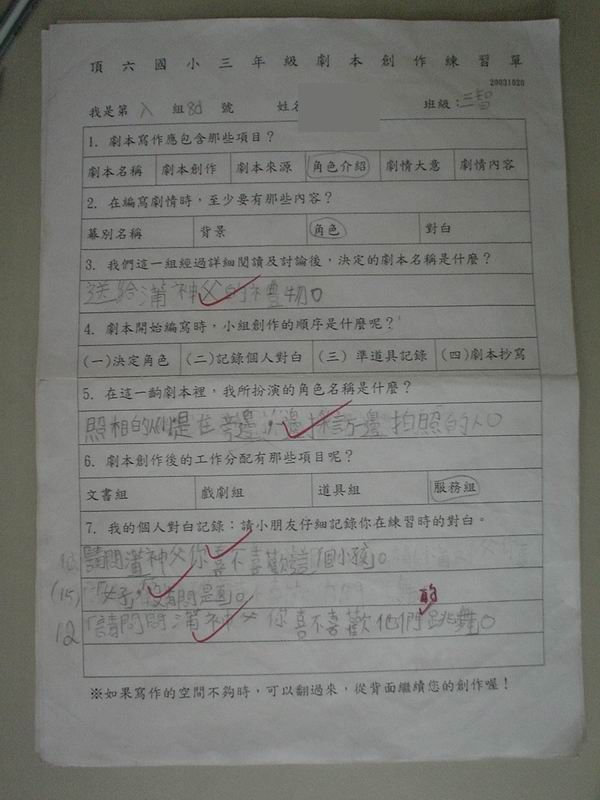 頂六國小三年級劇本創作練習單
20031020
我是第 八 組 8d 號 姓名 班級:三智
1. 劇本寫作應包含那些項目?
劇本名稱 劇本創作 劇本來源 角色介紹 劇情大意 劇情內容
2. 在編寫劇情時,至少要有那些內容?
幕別名稱 背景 角色 對白
3. 我們這一組經過詳細閱讀及討論後,決定的劇本名稱是什麼?
送給滿神父的禮物。
4. 劇本開始編寫時,小組創作的順序是什麼呢?
(一)決定角色 (二)記錄個人對白 (三) 準道具記錄 (四)劇本抄寫
5. 在這一齣劇本裡,我所扮演的角色名稱是什麼?
照相的人是在旁邊 邊採訪邊拍照的人。
6. 劇本創作後的工作分配有那些項目呢?
文書組 戲劇組 道具組 服務組
7. 我的個人對白記錄:請小朋友仔細記錄你在練習時的對白。
請問滿神父你喜不喜歡這個小孩。
(15) 沒有問題。
12 請問滿神父你喜不喜歡他們的跳舞。
※如果寫作的空間不夠時,可以翻過來,從背面繼續您的創作喔!